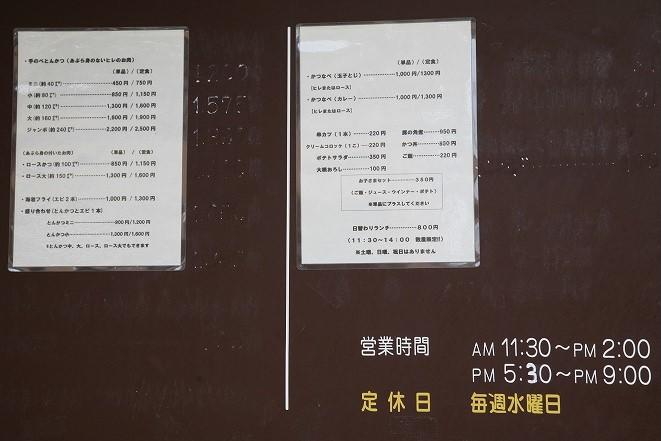 ・手のべとんかつ(あぶら身のないヒレのお肉)
(単品) / (定食)
ミニ(約40㌘) 450円 / 750円
小(約80㌘) 850円 / 1,150円
中(約120㌘) 1,300円 / 1,600円
大(約160㌘) 1,600円 / 1,900円
ジャンボ(約240㌘) 2,200円 / 2,500円
(あぶら身の付いたお肉) (単品) / (定食)
・ロースかつ(約100㌘) 850円 / 1,150円
・ロース大(約150㌘) 1,300円 / 1,600円
・海老フライ(エビ2本) 1,000円 / 1,300円
・盛り合わせ(とんかつとエビ1本)
とんかつミニ 900円/1,200円
とんかつ小 1,300円/1,600円
とんかつ中、大、ロース、ロース大もできます
(単品) / (定食)
・かつなべ(玉子とじ) 1,000円/1300円
[ヒレまたはロース]
・かつなべ(カレー) 1,000円/1,300円
[ヒレまたはロース]
串カツ(1本) 220円 豚の角煮 950円
クリームコロッケ(1こ) 220円 かつ丼 800円
ポテトサラダ 350円 ご飯 220円
大根おろし 100円
お子さまセット 350円
(ご飯・ジュース・ウインナー・ポテト)
※単品にプラスしてください
日替わりランチ 800円
(11:30~14:00 数量限定!!)
※土曜、日曜、祝日はありません
営業時間 AM 11:30~PM 2:00
PM 5:30~PM 9:00
定休日 毎週水曜日